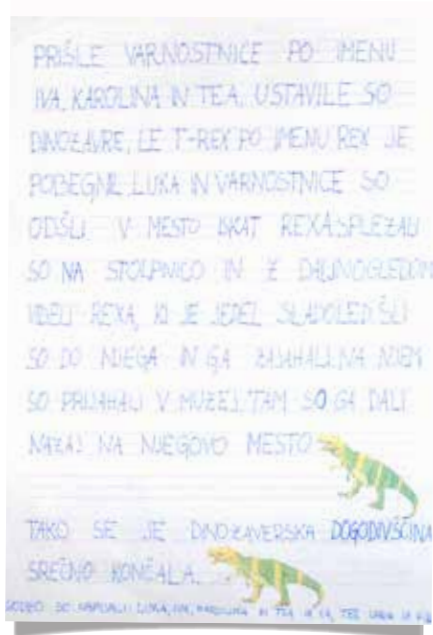 PRIŠLE VARNOSTNICE PO IMENU
IVA, KAROLINA IN TEA. USTAVILE SO
DINOZAVRE, LE T-REX PO IMENU REX JE
POBEGNIL. LUKA IN VARNOSTNICE SO
ODŠLI V MESTO ISKAT REXA. SPLEZALI
SO NA STOLPNICO IN Z DALJNOGLEDOM
VIDELI REXA, KI JE JEDEL SLADOLED. ŠLI
SO DO NJEGA IN GA ZAJAHALI. NA NJEM
SO PRIJAHALI V MUZEJ. TAM SO GA DALI
NAZAJ NA NJEGOVO MESTO.
TAKO SE JE DINOZAVERSKA DOGODIVŠČINA
SREČNO KONČALA.
SO NAPISALI LUKA, IVA, KAROLINA IN TEA